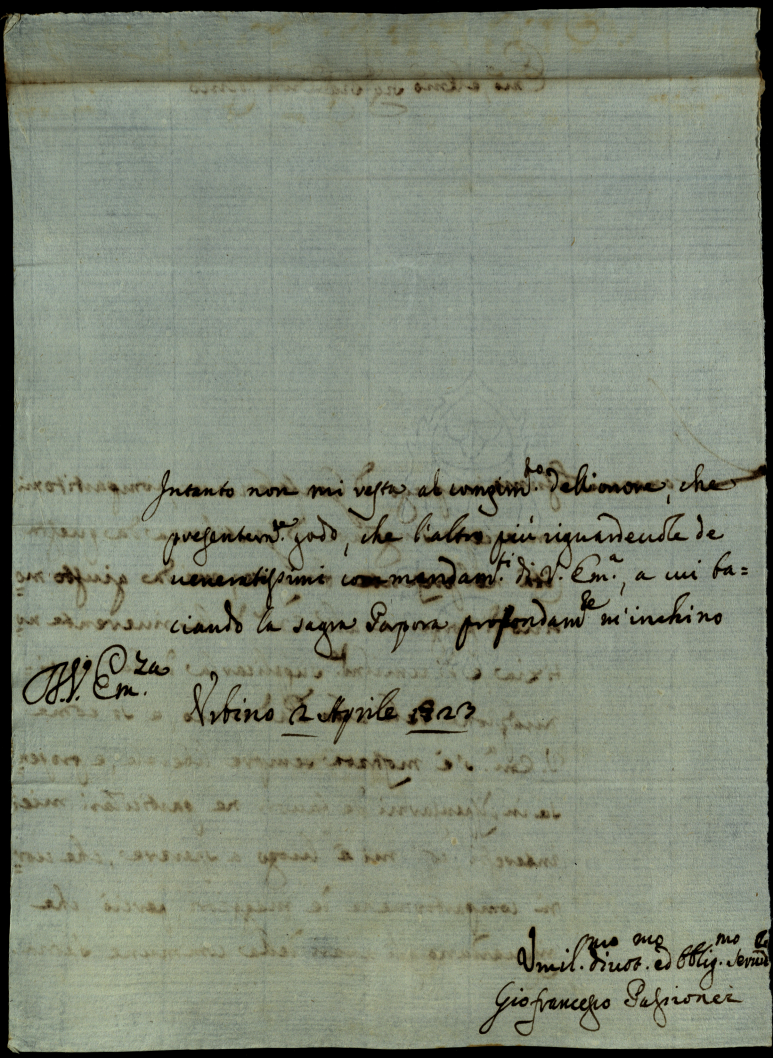 Intanto non mi resta al congim.to dell'onore, che
presentem.te godo, che l'altro più riguardeuole de
ueneratissimi commandam.ti di V. Em.a, a cui ba=
ciando la sagra Porpora profondam.te m'inchino
Vrbino 2 Aprile 1823
Vmil.mo diuot.mo ed obblig.mo Seruid.e
Giofrancesco Passionei